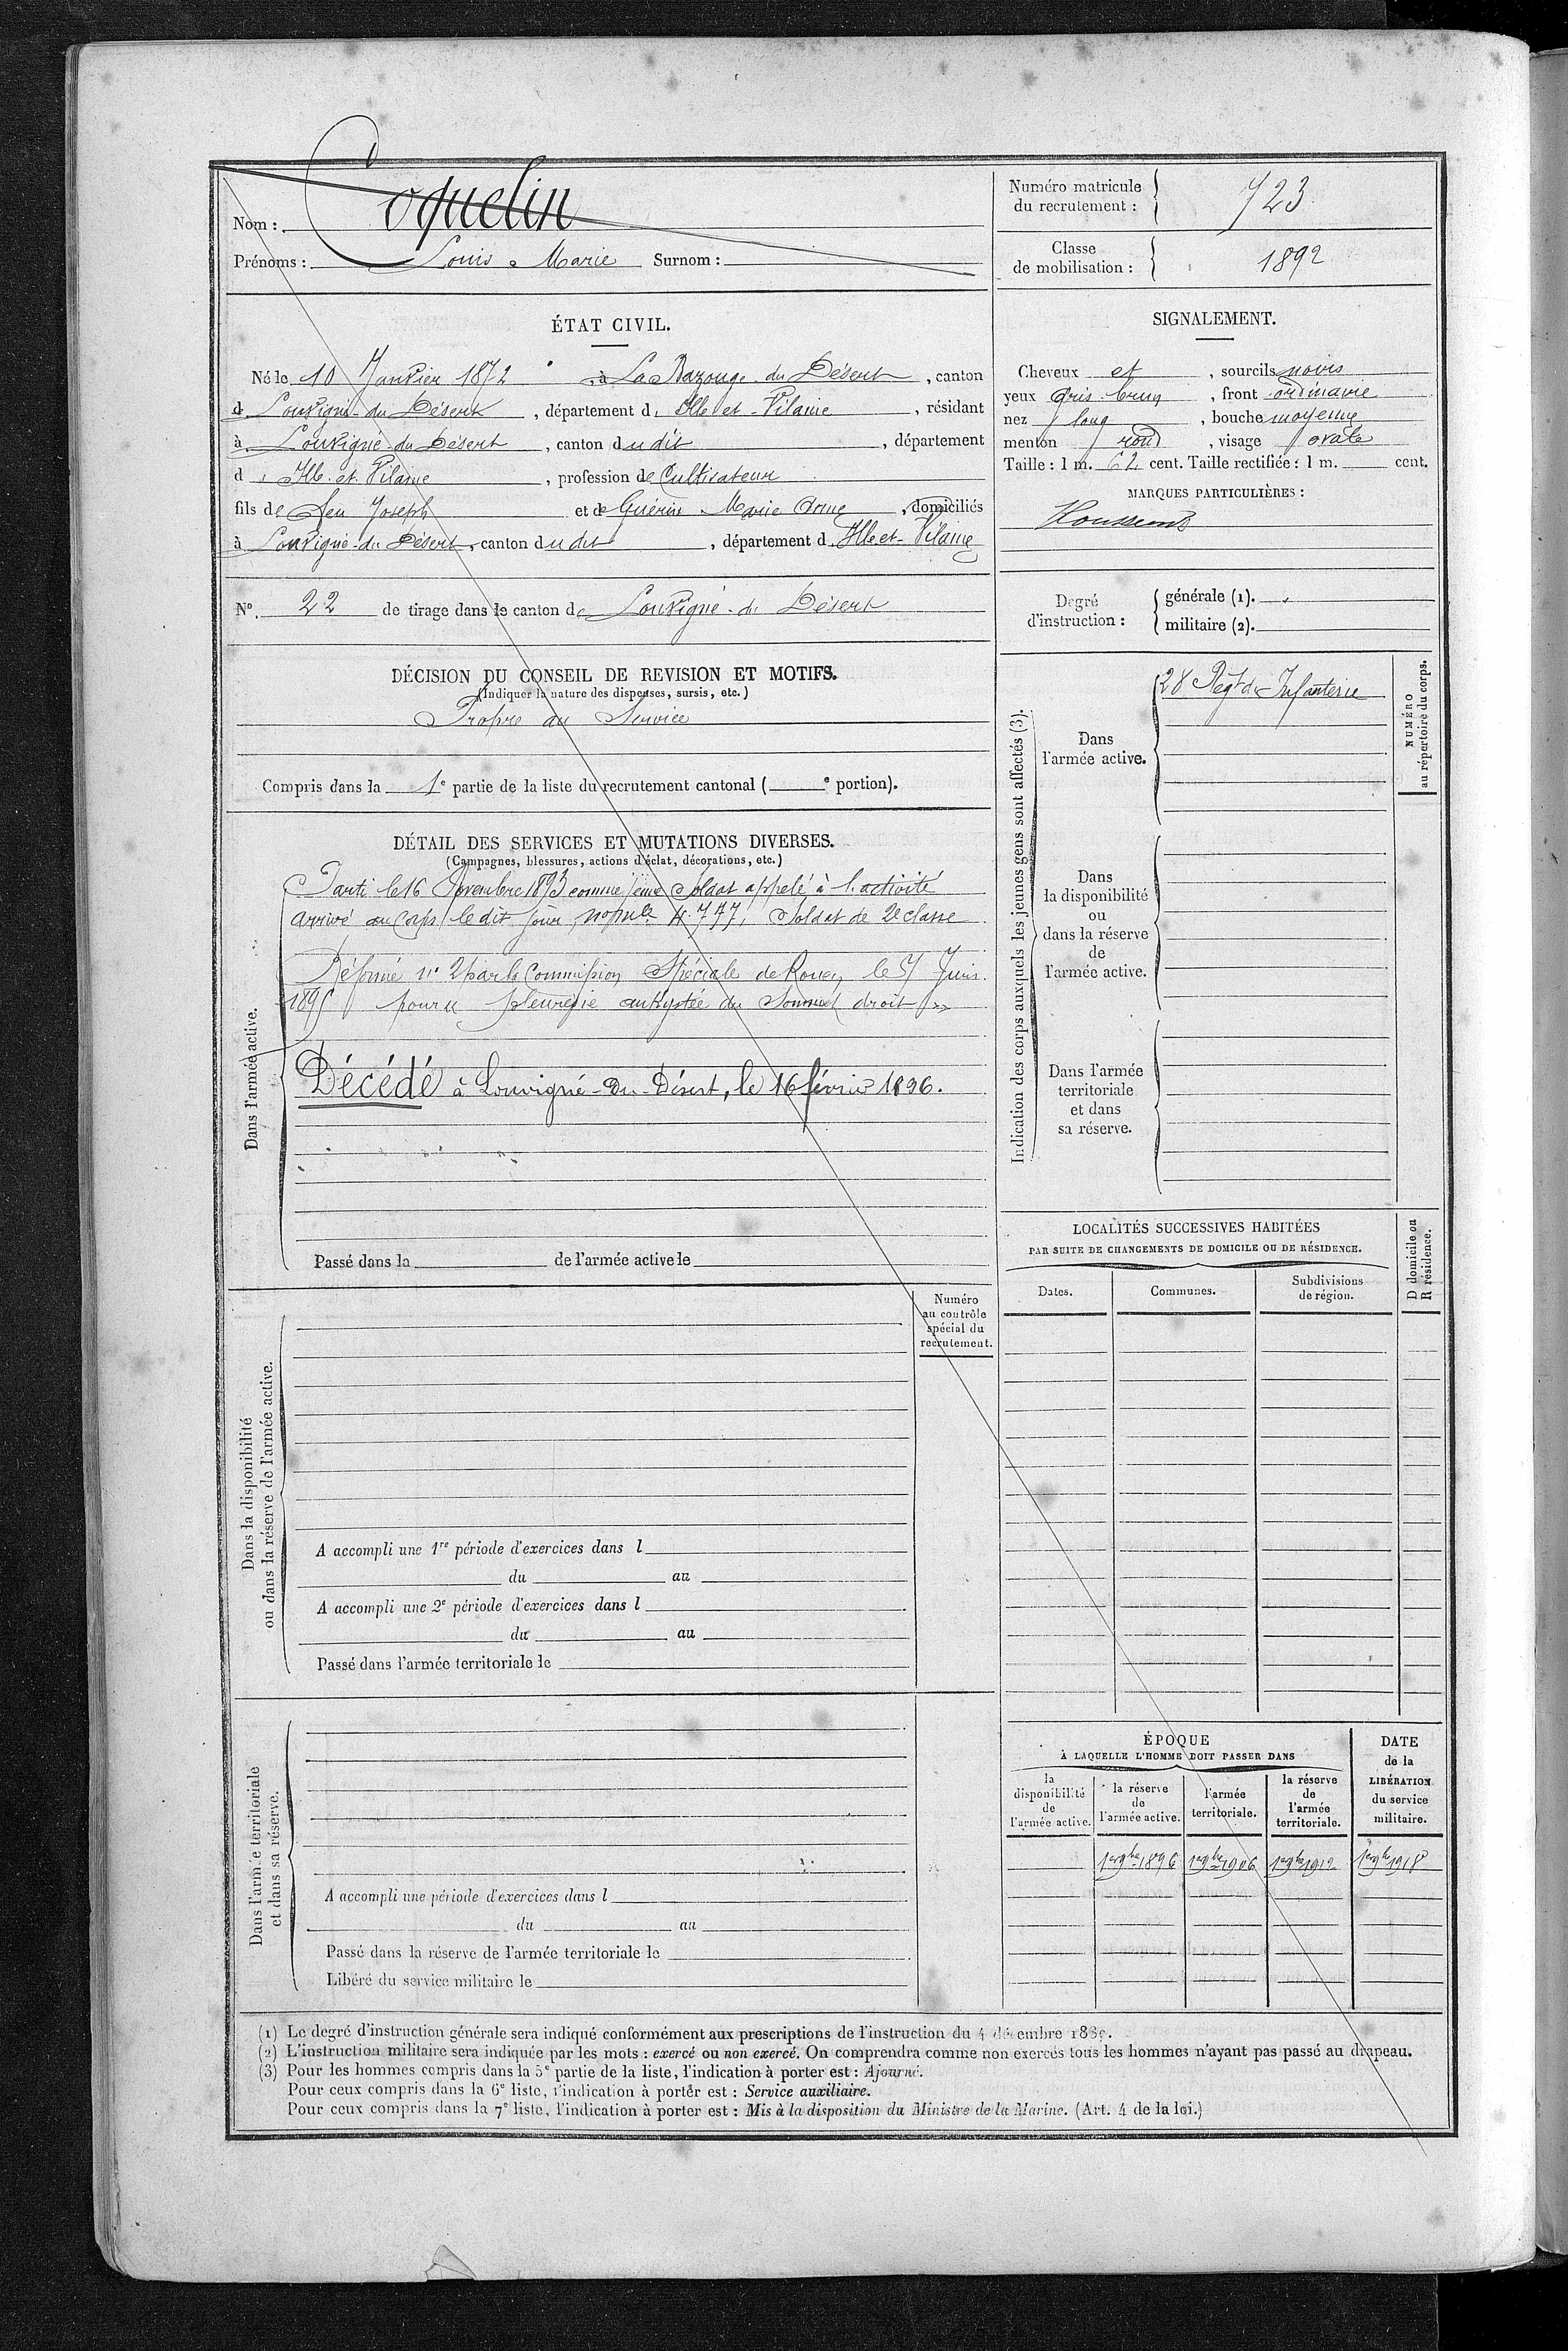 Nom : Coquelin
Prénoms : Louis Marie Surnom :
Numéro matricule du recrutement : 723
Classe de mobilisation : 1892
ÉTAT CIVIL.
Né le 10 Janvier 1872, à La Bazouge du Désert, canton
d Louvigné-du-Désert, département d Ille et-Vilaine, résidant
à Louvigné-du-Désert, canton dudit, département
d Ille-et-Vilaine, profession de Cultivateur
fils de feu Joseph et de Guérin Marie Anne, domiciliés
à Louvigné-du-Désert, canton dudit, département d Ille-et-Vilaine
N° 22 de tirage dans le canton de Louvigné-du Désert
DÉCISION DU CONSEIL DE REVISION ET MOTIFS.
(Indiquer la nature des dispenses, sursis, etc.)
Propre au Service
Compris dans la 1e partie de la liste du recrutement cantonal ( e portion).
DÉTAIL DES SERVICES ET MUTATIONS DIVERSES.
(Campagnes, blessures, actions d'éclat, décorations, etc.)
Dans l'armée active.
Parti le 16 Novembre 1893 comme jeune Soldat appelé à l'activité
arrivé au Corps le dit jour, no mle 4.747, Soldat de 2e classe
Réformé no 2 par la Commission Spéciale de Rouen le 5 Juin
1895 pour « pleurésie enkystée du Sommet droit »
Décédé à Louvigné-du-Désert, le 16 février 1896.
Passé dans la de l'armée active le
Dans la disponibilité
ou dans la réserve de l'armée active.
Numéro
au contrôle
spécial du
recrutement.
A accompli une 1re période d'exercices dans l
du au
A accompli une 2e période d'exercices dans l
du au
Passé dans l'armée territoriale le
Dans l'armée territoriale
et dans sa réserve.
A accompli une période d'exercices dans l
du au
Passé dans la réserve de l'armée territoriale le
Libéré du service militaire le
SIGNALEMENT.
Cheveux et, sourcils noirs
yeux gris-brun, front ordinaire
nez long, bouche moyenne
menton rond, visage ovale
Taille : 1 m. 62 cent. Taille rectifiée : 1 m. cent.
MARQUES PARTICULIÈRES :
Degré d'instruction :
générale (1).
militaire (2).
Indication des corps auxquels les jeunes gens sont affectés (3).
NUMÉRO
au répertoire du corps.
Dans
l'armée active.
28 Regt d'Infanterie
Dans
la disponibilité
ou
dans la réserve
de
l'armée active.
Dans l'armée
territoriale
et dans
sa réserve.
LOCALITÉS SUCCESSIVES HABITÉES
PAR SUITE DE CHANGEMENTS DE DOMICILE OU DE RÉSIDENCE.
D domicile ou
R résidence.
Dates. Communes. Subdivisions de région.
ÉPOQUE
À LAQUELLE L'HOMME DOIT PASSER DANS
la disponibilité de l'armée active.
la réserve de l'armée active.
l'armée territoriale.
la réserve de l'armée territoriale.
DATE de la LIBÉRATION du service militaire.
1er 9bre 1896 1er 9bre 1906 1er 9bre 1912 1er 9bre 1918
(1) Le degré d'instruction générale sera indiqué conformément aux prescriptions de l'instruction du 4 décembre 1889.
(2) L'instruction militaire sera indiquée par les mots : exercé ou non exercé. On comprendra comme non exercés tous les hommes n'ayant pas passé au drapeau.
(3) Pour les hommes compris dans la 5e partie de la liste, l'indication à porter est : Ajourné.
Pour ceux compris dans la 6e liste, l'indication à porter est : Service auxiliaire.
Pour ceux compris dans la 7e liste, l'indication à porter est : Mis à la disposition du Ministre de la Marine. (Art. 4 de la loi.)